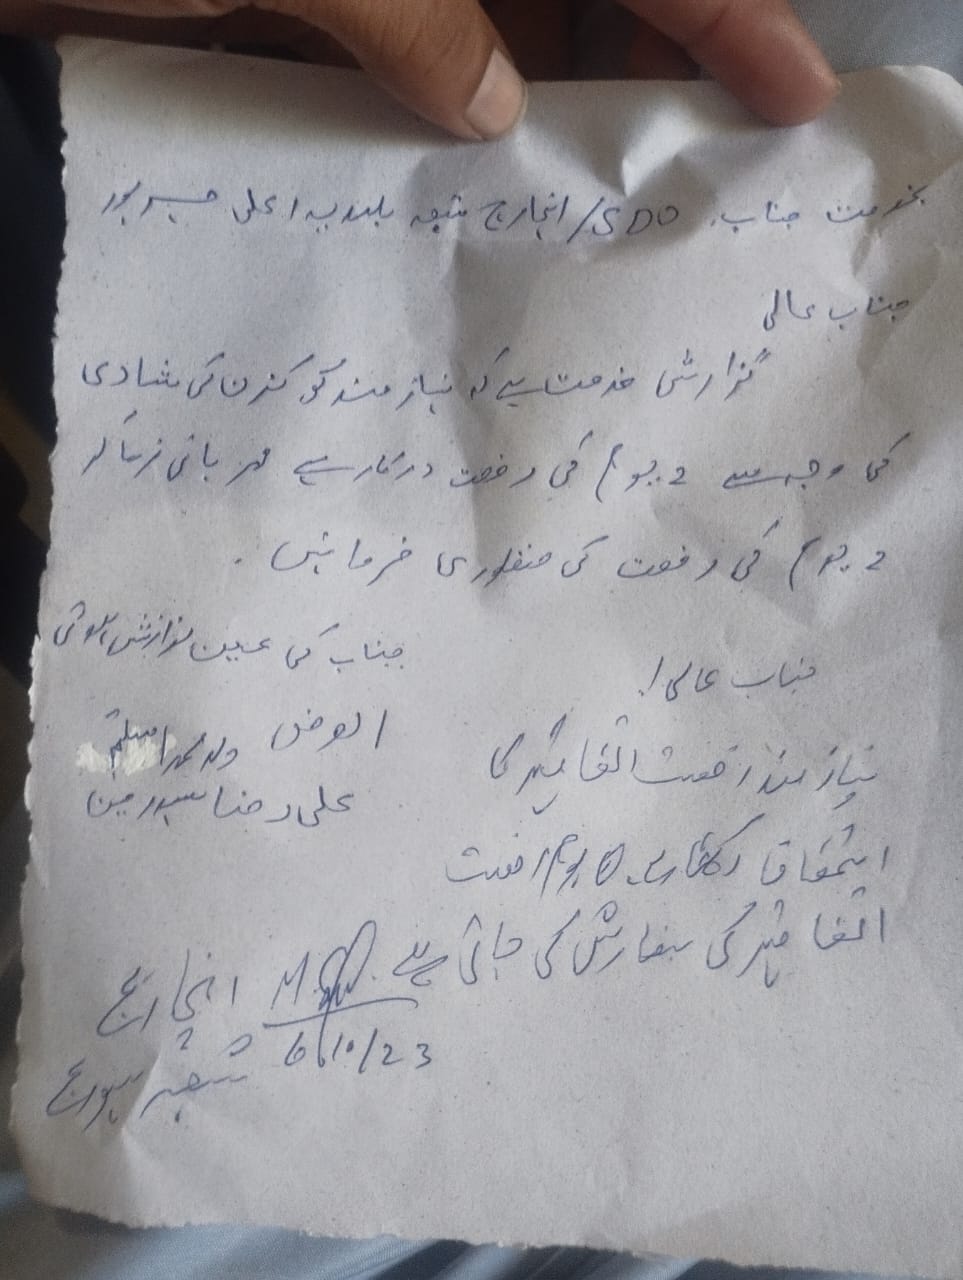 بخدمت جناب SDO/انچارج شعبہ بلدیہ اعلی
جناب عالی
گزارش خدمت ہے کہ نیاز مند کو کزن کی شادی
کی وجہ سے 2 یوم کی رخصت درکار ہے مہربانی فرما کر
2 یوم کی رخصت کی منظوری فرمائیں ۔
جناب کی عین نوازش ہو گی
العرض ولد محمد اسلم
علی رضا سیورمین
جناب عالی!
نیاز مند رخصت اتفاقیہ کا
استحقاق رکھتا ہے۔ یوم رخصت
اتفاقیہ کی سفارش کی جاتی ہے
انچارج
6/10/23
شعبہ سیورج